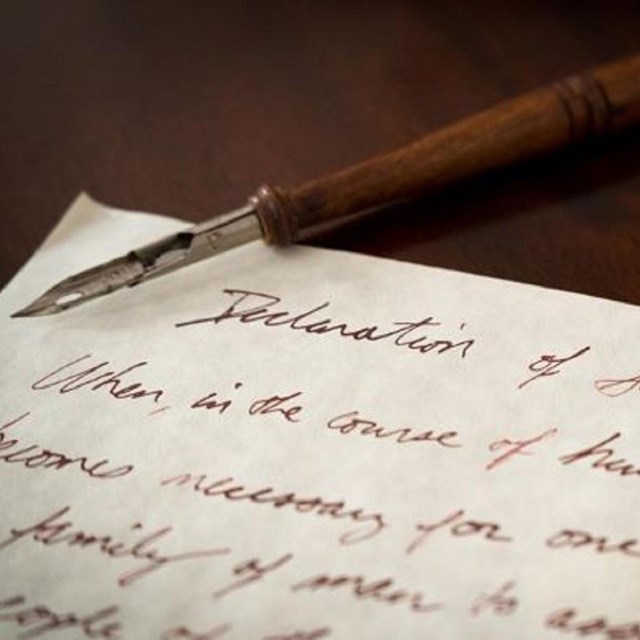 Declaration of
When, in the course of hu
becomes necessary for one
family of men to